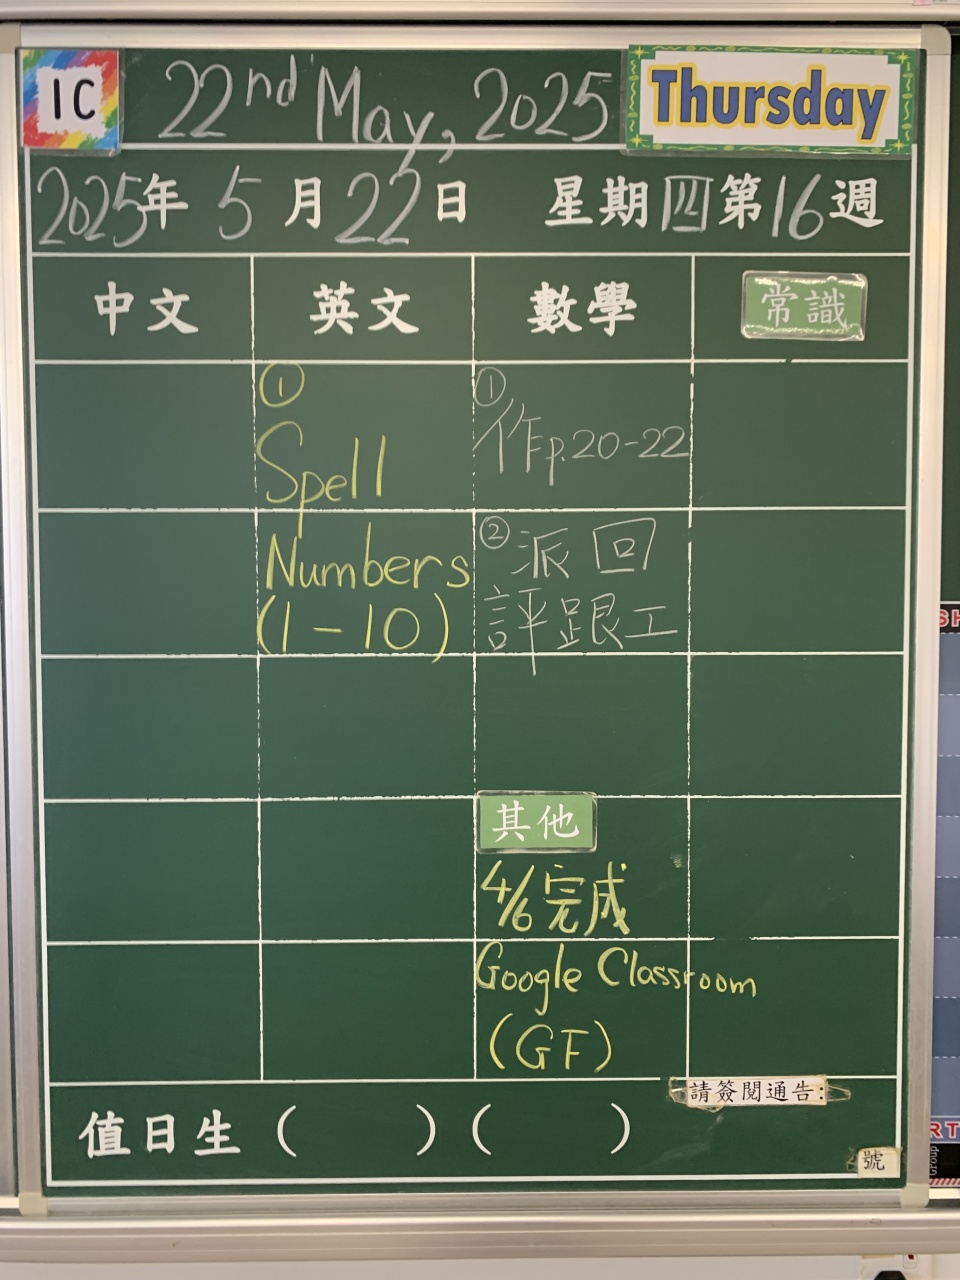 1C 22nd May, 2025 Thursday
2025年 5月22日 星期四第16週
中文 英文 數學 常識
①
Spell
Numbers
(1-10)
①
作p.20-22
② 派回
評跟工
其他
4/6完成
Google Classroom
(GF)
請簽閱通告:
值日生 ( ) ( )
號